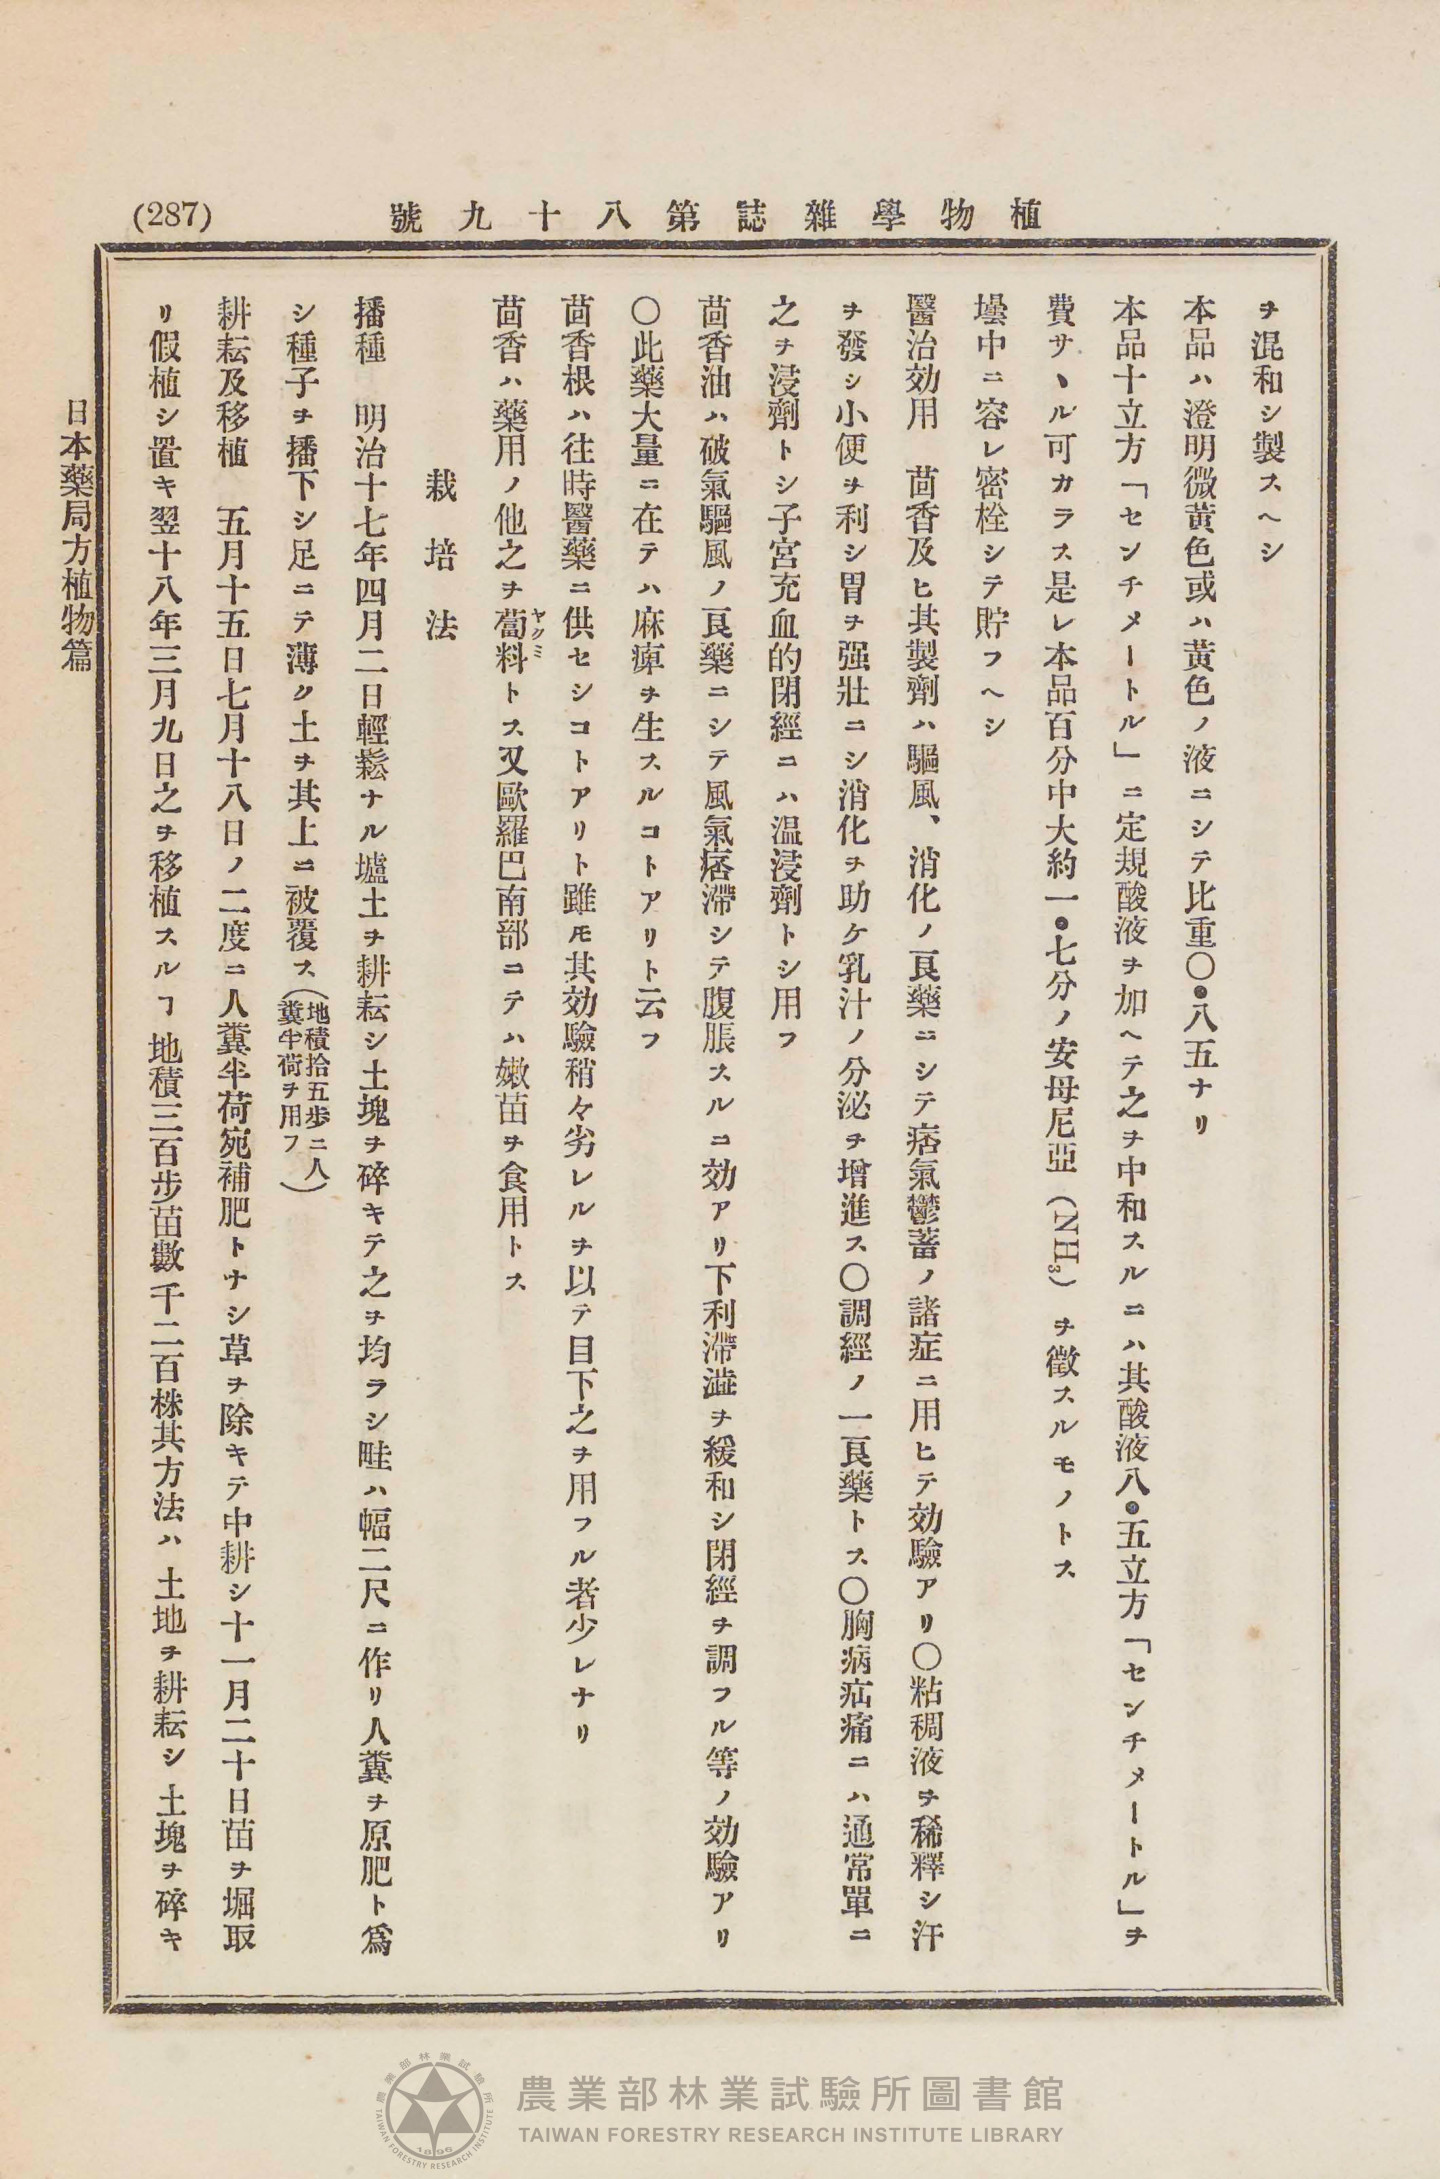 植物學雜誌第八十九號
(287)
ヲ混和シ製スヘシ
本品ハ澄明微黃色或ハ黃色ノ液ニシテ比重〇●八五ナリ
本品十立方「センチメートル」ニ定規酸液ヲ加ヘテ之ヲ中和スルニハ其酸液八●五立方「センチメートル」ヲ
費サヽル可カラス是レ本品百分中大約一●七分ノ安母尼亞(NH₃)ヲ徵スルモノトス
壜中ニ容レ密栓シテ貯フヘシ
醫治効用　茴香及ヒ其製劑ハ驅風、消化ノ良藥ニシテ痞氣鬱蓄ノ諸症ニ用ヒテ効驗アリ〇粘稠液ヲ稀釋シ汗
ヲ發シ小便ヲ利シ胃ヲ强壯ニシ消化ヲ助ケ乳汁ノ分泌ヲ增進ス〇調經ノ一良藥トス〇胸病疝痛ニハ通常單ニ
之ヲ浸劑トシ子宮充血的閉經ニハ温浸劑トシ用フ
茴香油ハ破氣驅風ノ良藥ニシテ風氣痞滯シテ腹脹スルニ効アリ下利滯澁ヲ緩和シ閉經ヲ調フル等ノ効驗アリ
〇此藥大量ニ在テハ麻痺ヲ生スルコトアリト云フ
茴香根ハ往時醫藥ニ供セシコトアリト雖モ其効驗稍々劣レルヲ以テ目下之ヲ用フル者少レナリ
茴香ハ藥用ノ他之ヲ蔔料トス又歐羅巴南部ニテハ嫩苗ヲ食用トス
ヤクミ
栽培法
播種　明治十七年四月二日輕鬆ナル壚土ヲ耕耘シ土塊ヲ碎キテ之ヲ均ラシ畦ハ幅二尺ニ作リ人糞ヲ原肥ト爲
シ種子ヲ播下シ足ニテ薄ク土ヲ其上ニ被覆ス(地積拾五歩ニ人
糞半荷ヲ用フ)
耕耘及移植　五月十五日七月十八日ノ二度ニ人糞半荷宛補肥トナシ草ヲ除キテ中耕シ十一月二十日苗ヲ堀取
リ假植シ置キ翌十八年三月九日之ヲ移植スルヿ地積三百步苗數千二百株其方法ハ土地ヲ耕耘シ土塊ヲ碎キ
日本藥局方植物篇
農業部林業試驗所圖書館
TAIWAN FORESTRY RESEARCH INSTITUTE LIBRARY
農業部林業試驗所
TAIWAN FORESTRY RESEARCH INSTITUTE
1896